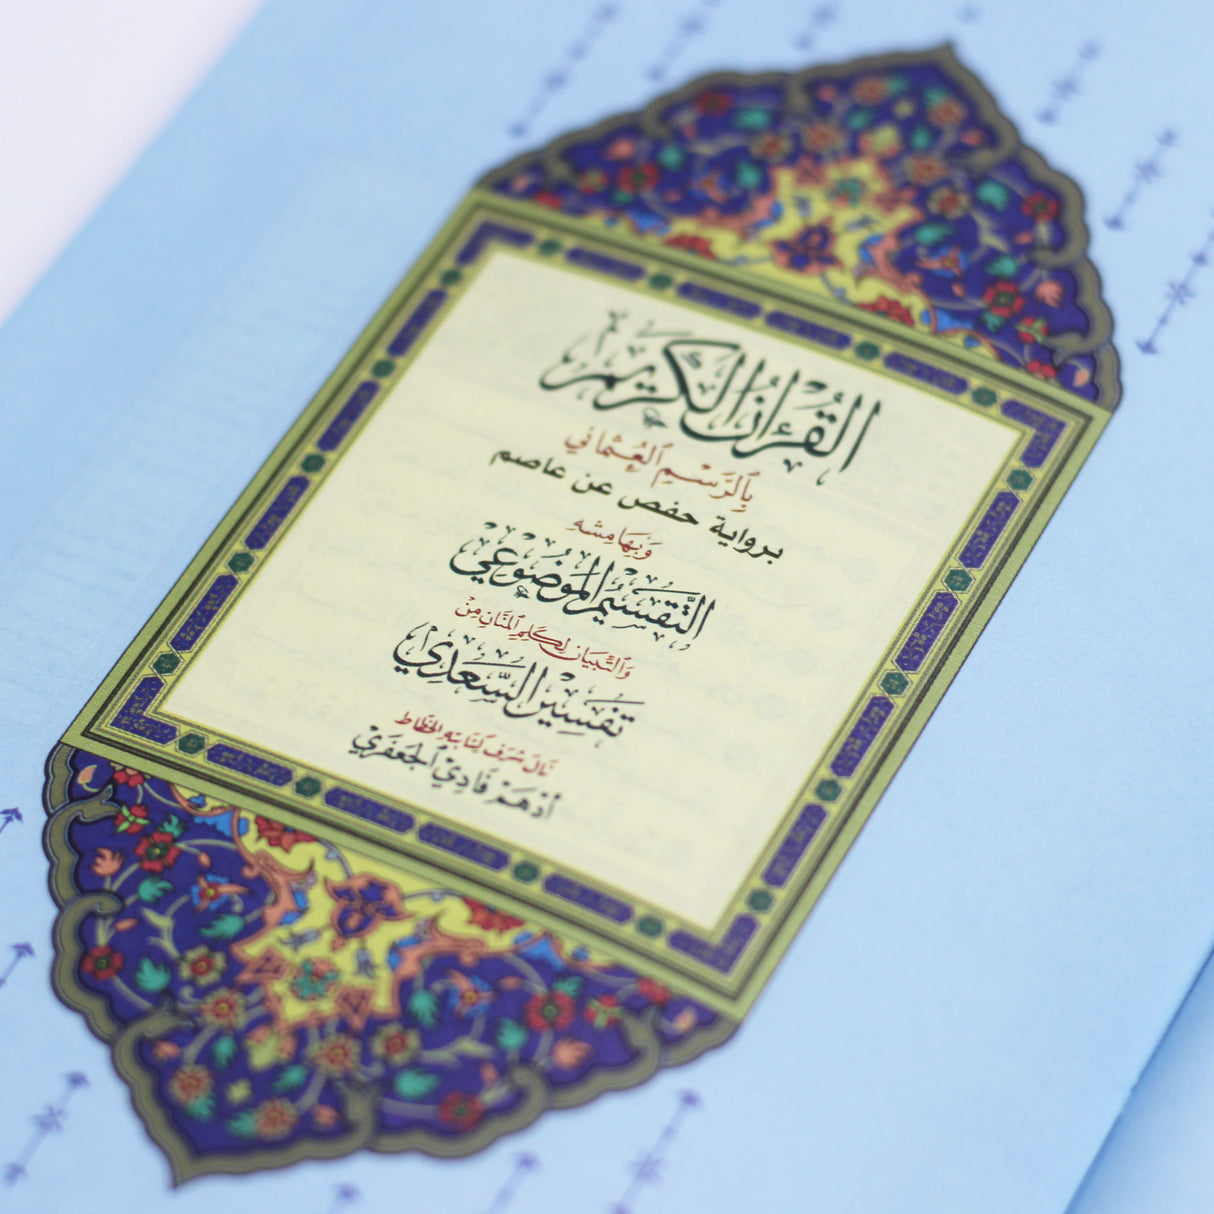 القُرْءَانُ الكَرِيم
بِٱلرَّسْمِ ٱلعُثمَانِي
برواية حفص عن عاصم
وَبِهَامِشِه
التَّقسِيمُ المَوضُوعِي
وَالتِّبيَان لِكَلِمِ المَنَّانِ مِنْ
تَفسِير السَّعدِي
نَالَ شَرَفَ كِتَابَتِهِ الخَطَّاط
أدْهَمْ فَادِي الجَعفَرِيْ